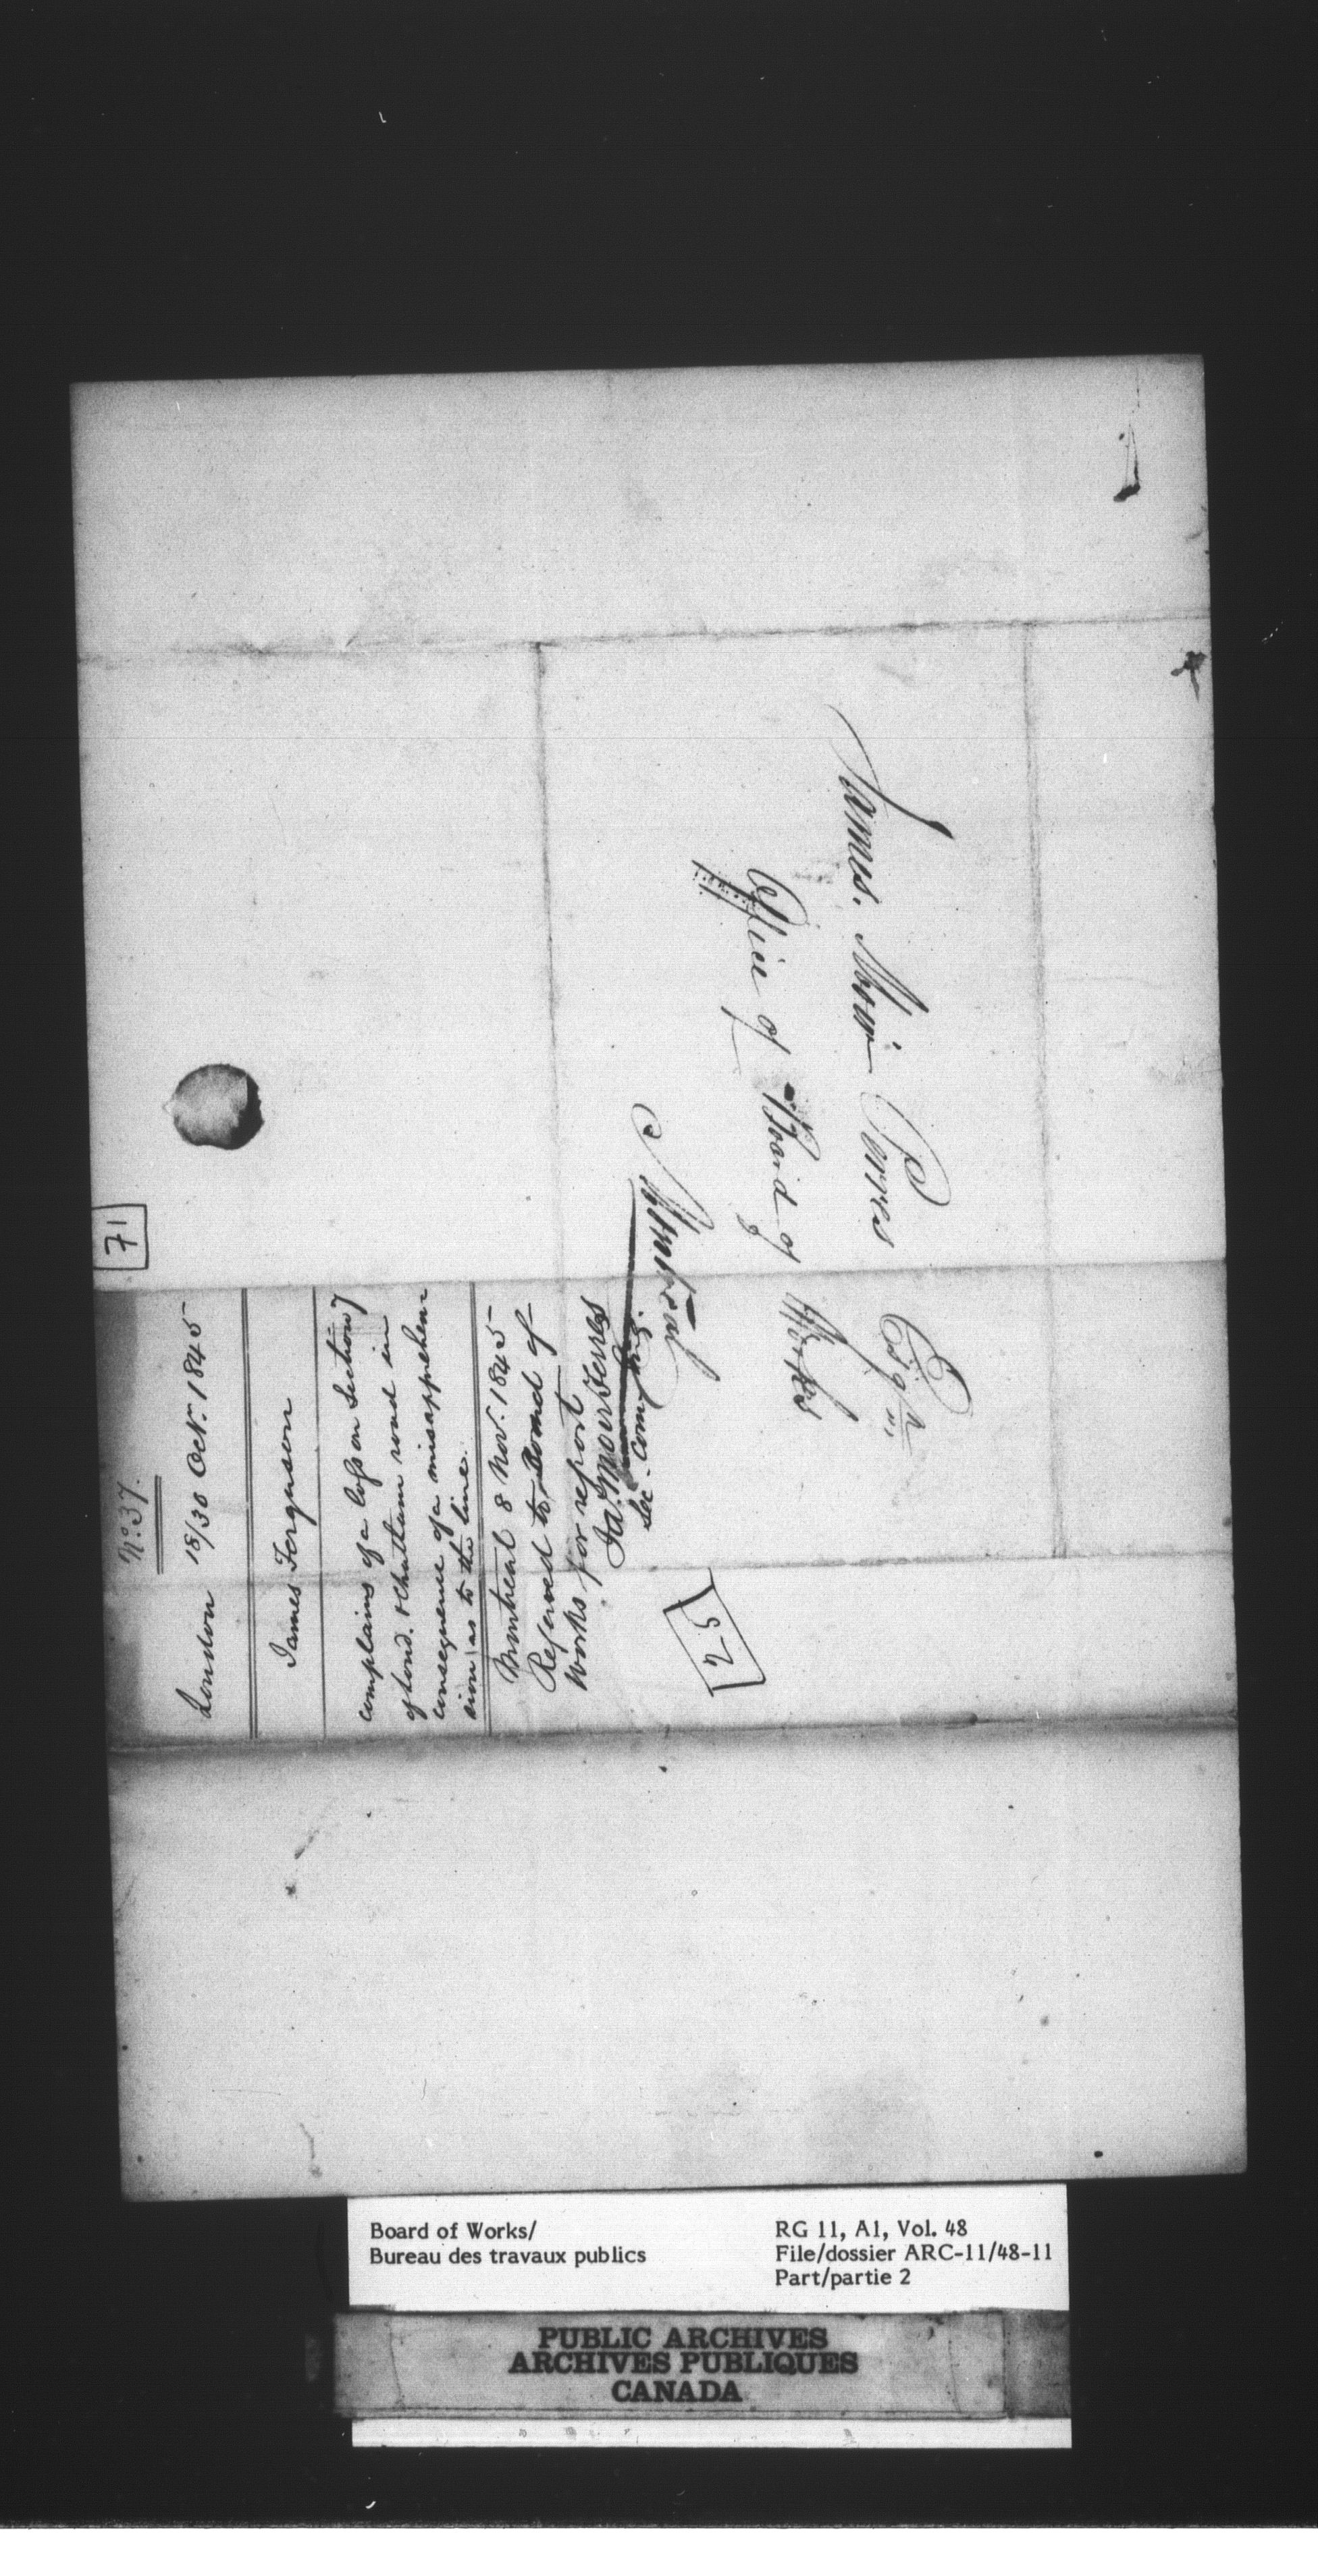 James. Moir Ferres Esqr.
Office of Board of Works
Montreal
71
No. 37.
London 18/30 Oct. 1845
James Ferguson
Complains of a loss on Section 7
of Lond. & Chatham road in
consequence of a misapprehen
sion as to the line.
Montreal 8 Nov. 1845
Referred to Board of
Works for report
Ja. Moir Ferres
Sec. Comm
25
Board of Works/
Bureau des travaux publics
RG 11, A1, Vol. 48
File/dossier ARC-11/48-11
Part/partie 2
PUBLIC ARCHIVES
ARCHIVES PUBLIQUES
CANADA